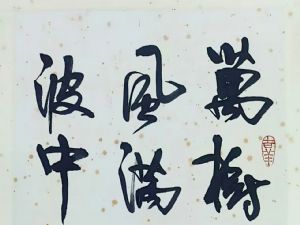 萬樹
風滿
波中